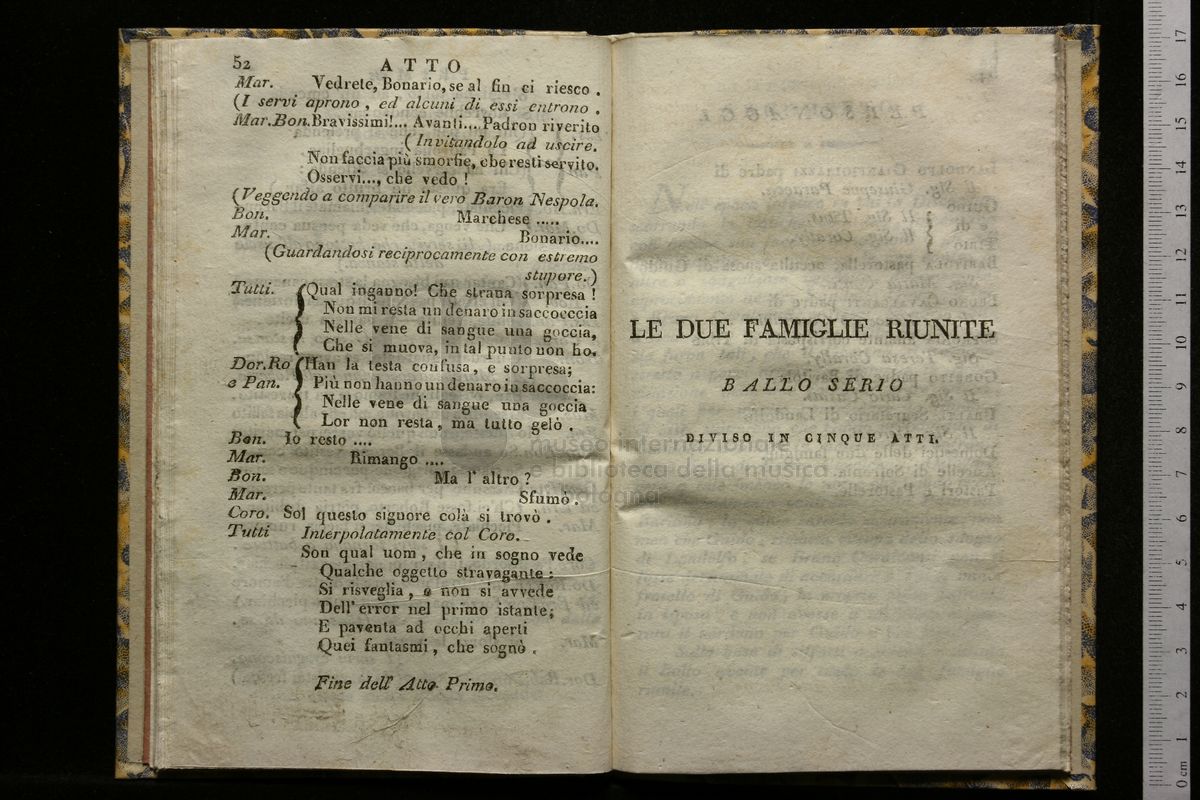 52 ATTO
Mar. Vedrete, Bonario, se al fin ci riesco.
(I servi aprono, ed alcuni di essi entrono.
Mar.Bon. Bravissimi!... Avanti.... Padron riverito
(Invitandolo ad uscire.
Non faccia più smorfie, che resti servito.
Osservi..., che vedo!
(Veggendo a comparire il vero Baron Nespola.
Bon. Marchese .....
Mar. Bonario....
(Guardandosi reciprocamente con estremo
stupore.)
Tutti. Qual inganno! Che strana sorpresa!
Non mi resta un denaro in saccoccia
Nelle vene di sangue una goccia,
Che si muova, in tal punto non ho.
Dor.Ro Han la testa confusa, e sorpresa;
e Pan. Più non hanno un denaro in saccoccia:
Nelle vene di sangue una goccia
Lor non resta, ma tutto gelò.
Bon. Io resto ....
Mar. Rimango ....
Bon. Ma l' altro?
Mar. Sfumò.
Coro. Sol questo signore colà si trovò.
Tutti Interpolatamente col Coro.
Son qual uom, che in sogno vede
Qualche oggetto stravagante;
Si risveglia, e non si avvede
Dell' error nel primo istante;
E paventa ad occhi aperti
Quei fantasmi, che sognò.
Fine dell' Atto Primo.
LE DUE FAMIGLIE RIUNITE
BALLO SERIO
DIVISO IN CINQUE ATTI.
museo internazionale
e biblioteca della musica
bologna
0 cm 1 2 3 4 5 6 7 8 9 10 11 12 13 14 15 16 17